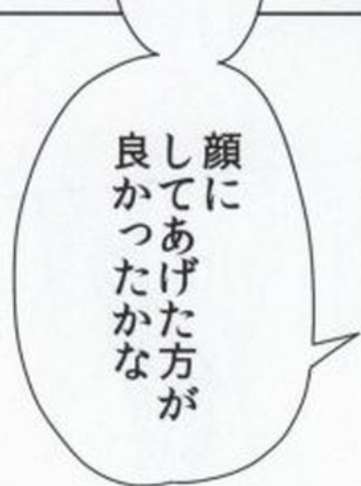 顔に
してあげた方が
良かったかな